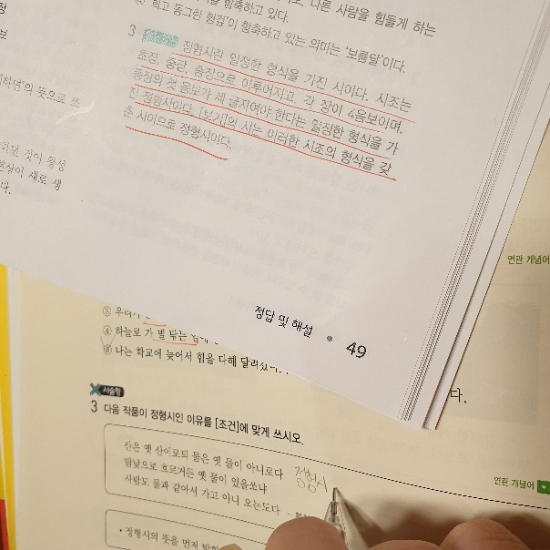 다른 사람을 힘들게 하는
하고 동그란 형겊'이 함축하고 있는 의미는 '보름달'이다.
3 정형시란 일정한 형식을 가진 시이다. 시조는
초장, 중장, 종장으로 이루어지고, 각 장이 4음보이며,
종장의 첫 음보가 세 글자여야 한다는 일정한 형식을 가
진 정형시이다. [보기]의 시는 이러한 시조의 형식을 갖
춘 시이므로 정형시이다.
뜻으로 쓰
것이 왕성
새로 생
다.
정답 및 해설 • 49
연관 개념어
④ 하늘로 가 별 닦는
⑤ 나는 학교에 늦어서 힘을 다해 달려갔다.
다.
서술형
3 다음 작품이 정형시인 이유를 [조건]에 맞게 쓰시오.
산은 옛 산이로되 물은 옛 물이 아니로다
정형시
밤낮으로 흐르거든 옛 물이 있을쏘냐
사람도 물과 같아서 가고 아니 오는도다
연관 개념어
• 정형시의 뜻을 먼저